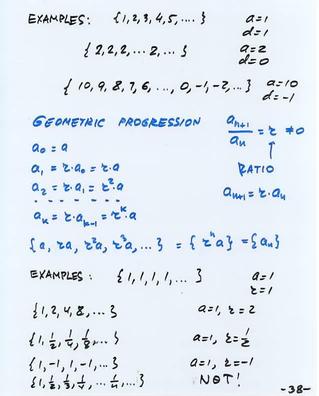 EXAMPLES: {1,2,3,4,5,....} a=1
d=1
{2,2,2,... 2,...} a=2
d=0
{10,9,8,7,6,..., 0,-1,-2,...} a=10
d=-1
GEOMETRIC PROGRESSION a_{n+1}/a_n = r ≠0
a_0 = a
a_1 = r·a_0 = r·a RATIO
a_2 = r·a_1 = r²·a a_{n+1} = r·a_n
- - - - - - -
a_k = r·a_{k-1} = r^k·a
{a, ra, r²a, r³a, ...} = {r^n a} = {a_n}
EXAMPLES: {1,1,1,1,...} a=1
r=1
{1,2,4,8,...} a=1, r=2
{1,1/2,1/4,1/8,...} a=1, r=1/2
{1,-1,1,-1,...} a=1, r=-1
{1,1/2,1/3,1/4,...1/n,...} NOT!
-38-